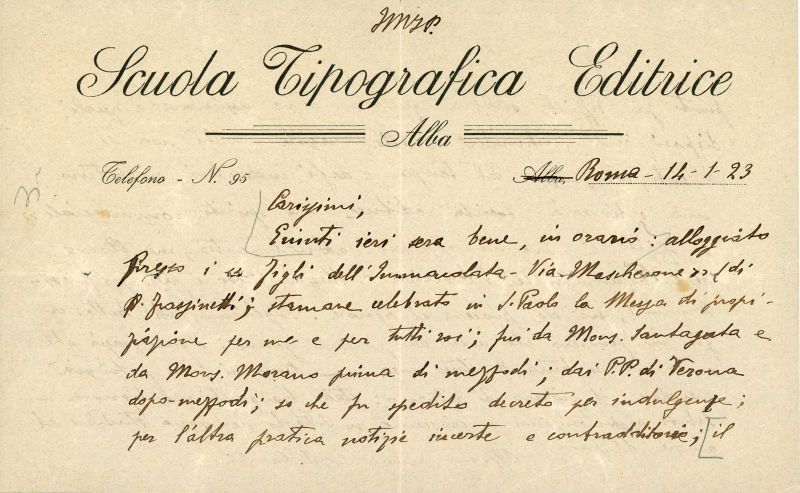 JMJP.
Scuola Tipografica Editrice
Alba
Telefono - N. 95
Alba, Roma - 14-1-23
Carissimi,
Giunti ieri sera bene, in orario: alloggiato
presso i Figli dell'Immacolata - Via Mascherone (di
P. Frassinetti); stamane celebrato in S. Paolo la Messa di propi-
ziazione per me e per tutti voi; fui da Mons. Santagata e
da Mons. Morano prima di mezzodì; dai P.P. di Verona
dopo-mezzodì; so che fu spedito decreto per indulgenze;
per l'altra pratica notizie incerte e contradditorie; il